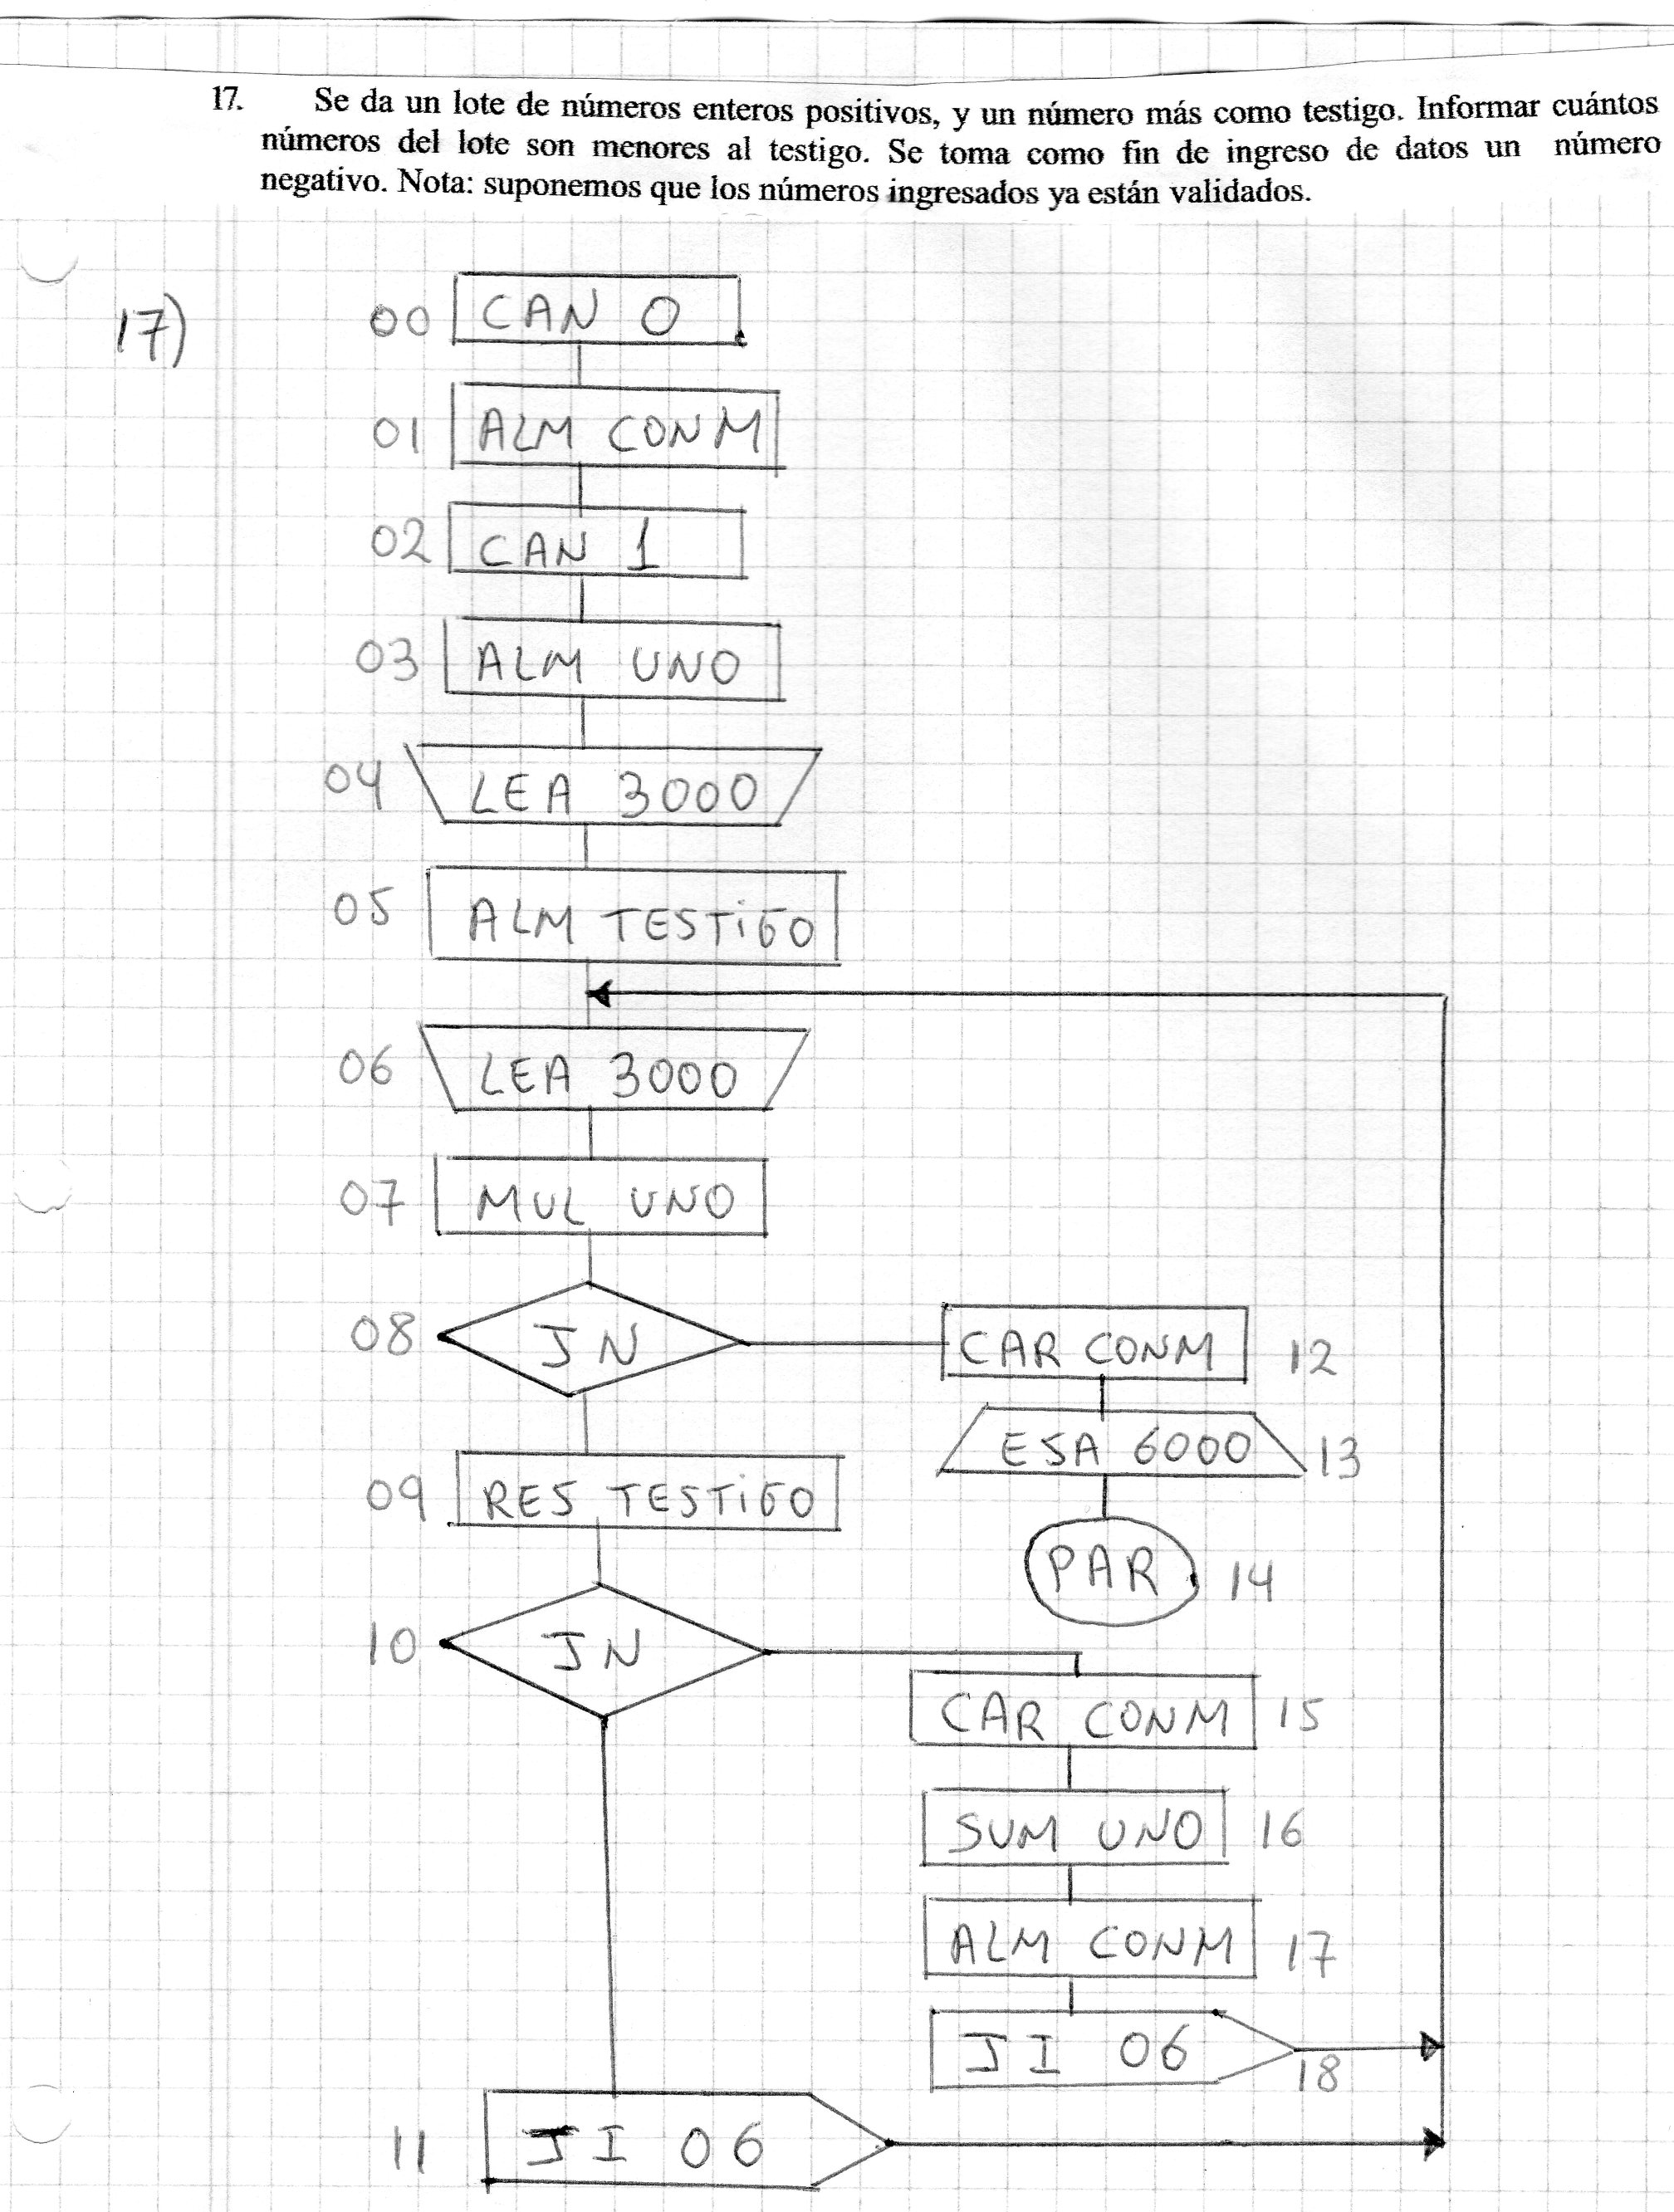 17. Se da un lote de números enteros positivos, y un número más como testigo. Informar cuántos
números del lote son menores al testigo. Se toma como fin de ingreso de datos un número
negativo. Nota: suponemos que los números ingresados ya están validados.
17)
00 CAN 0
01 ALM CONM
02 CAN 1
03 ALM UNO
04 LEA 3000
05 ALM TESTiGO
06 LEA 3000
07 MUL UNO
08 JN
CAR CONM 12
ESA 6000 13
PAR 14
09 RES TESTiGO
10 JN
CAR CONM 15
SUM UNO 16
ALM CONM 17
JI 06 18
11 JI 06